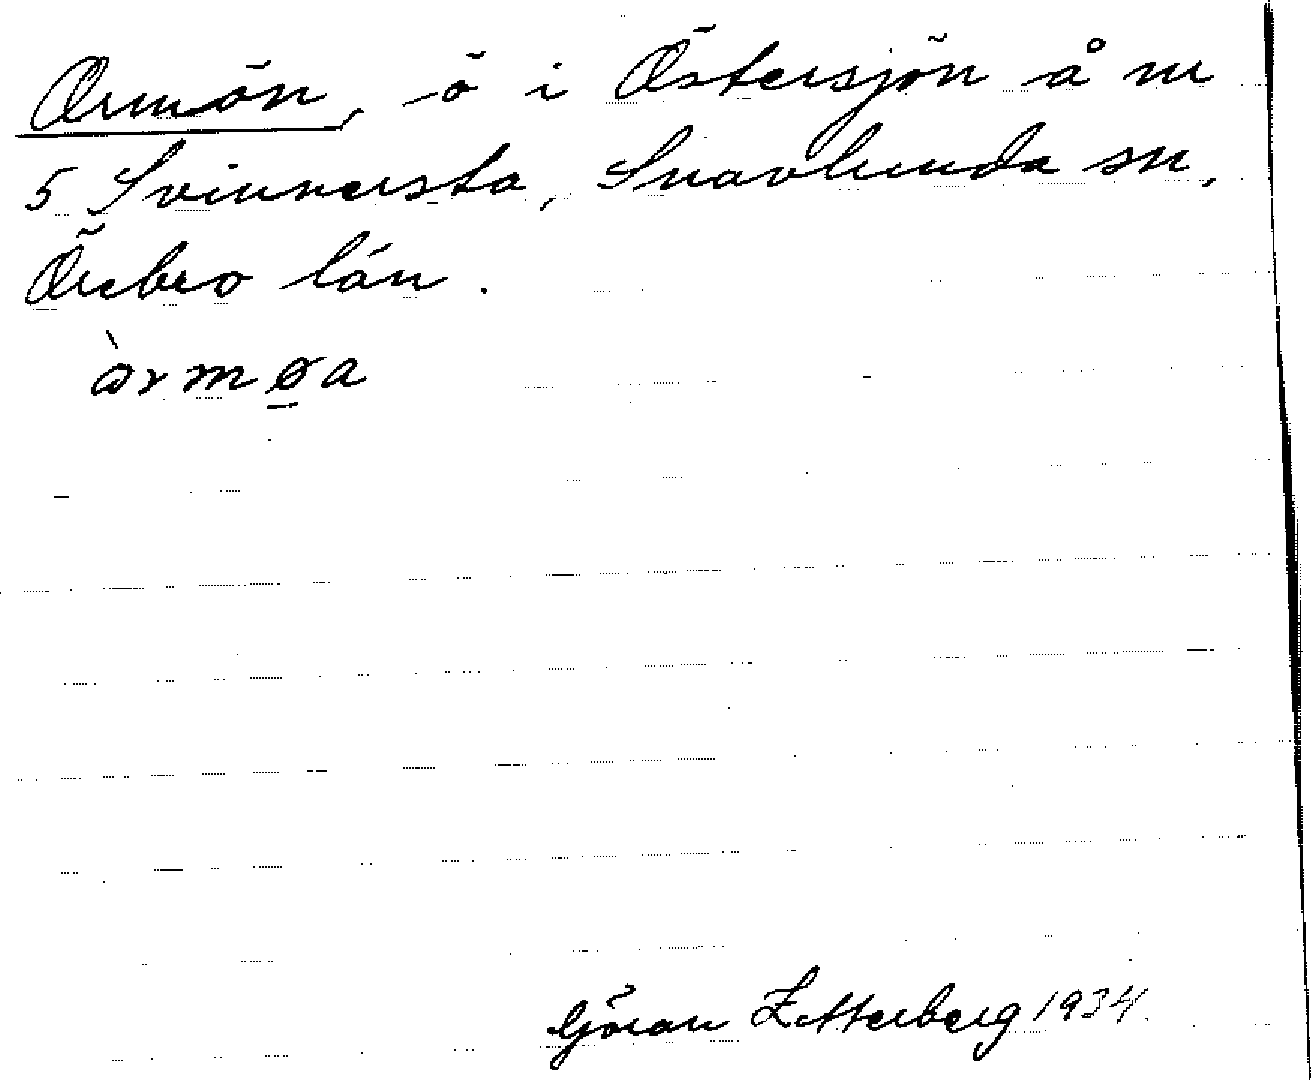 Ormön, ö i Östersjön å nr
5 Svinnersta, Snavlunda sn,
Örebro län.
òrmøa
Göran Zetterberg 1934